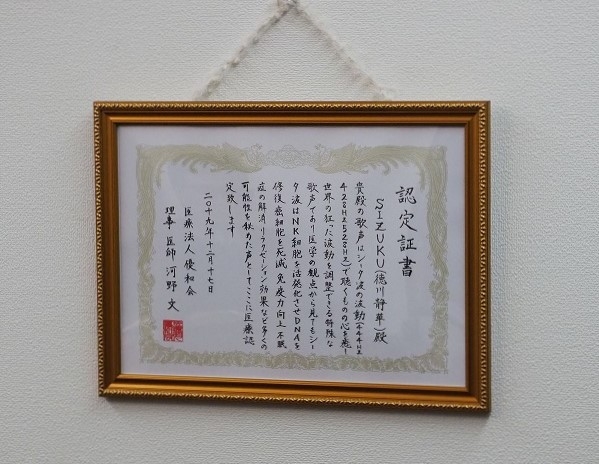 認定証書
SIZUKU(徳川静華)殿
貴殿の歌声はシータ波の波動(444Hz
428Hz528Hz)で聴くものの心を癒し
世界の狂った波動を調整できる特殊な
歌声であり医学の観点から見てもシー
タ波はNK細胞を活発化させDNAを
修復癌細胞を死滅免疫力向上不眠
症の解消リラクゼーション効果など多くの
可能性を秘めた声としてここに医療認
定致します
二〇十九年十二月十七日
医療法人優和会
理事医師河野文